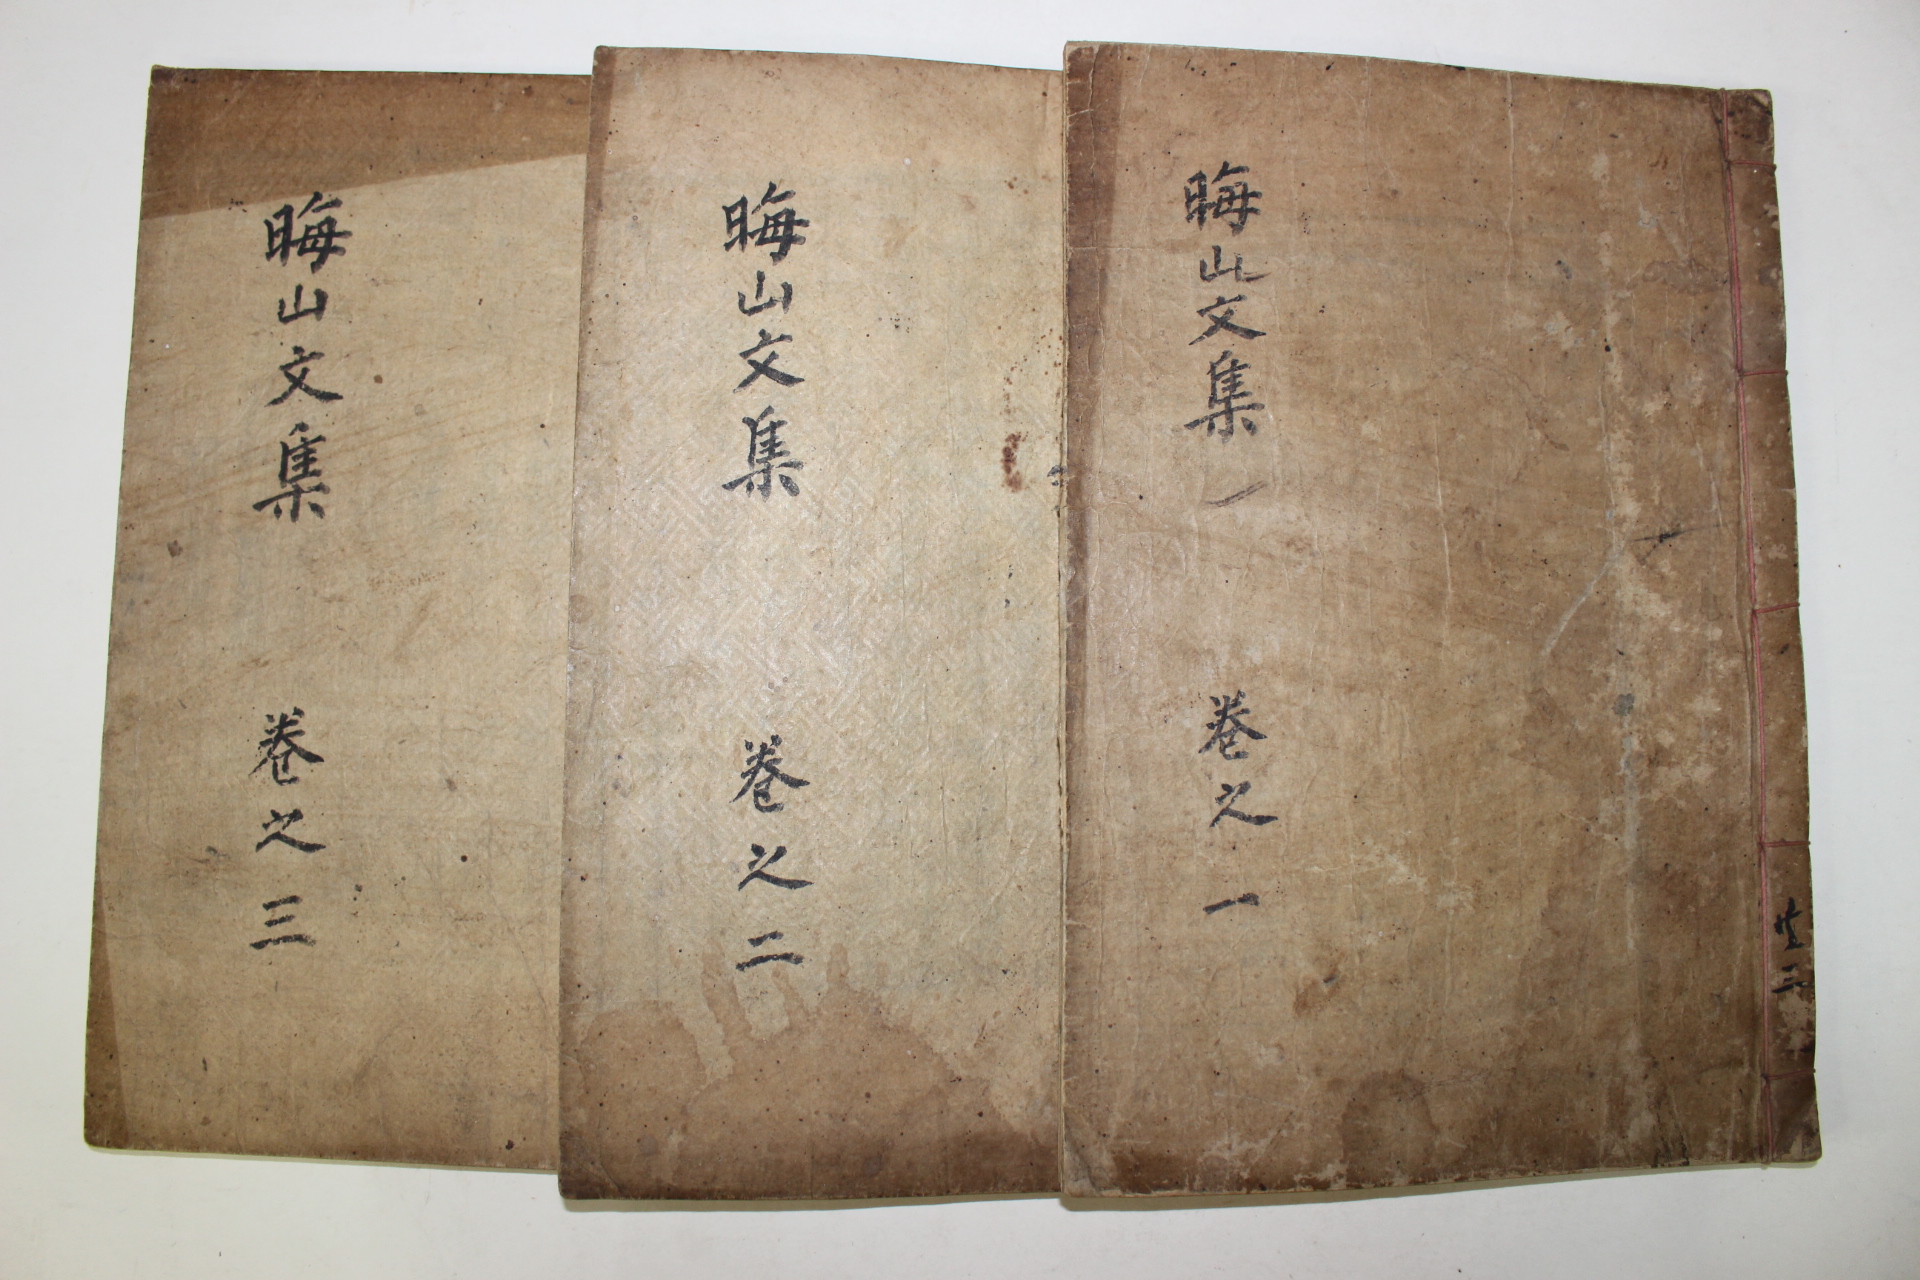 晦山文集 卷之一
共三
晦山文集 卷之二
晦山文集 卷之三